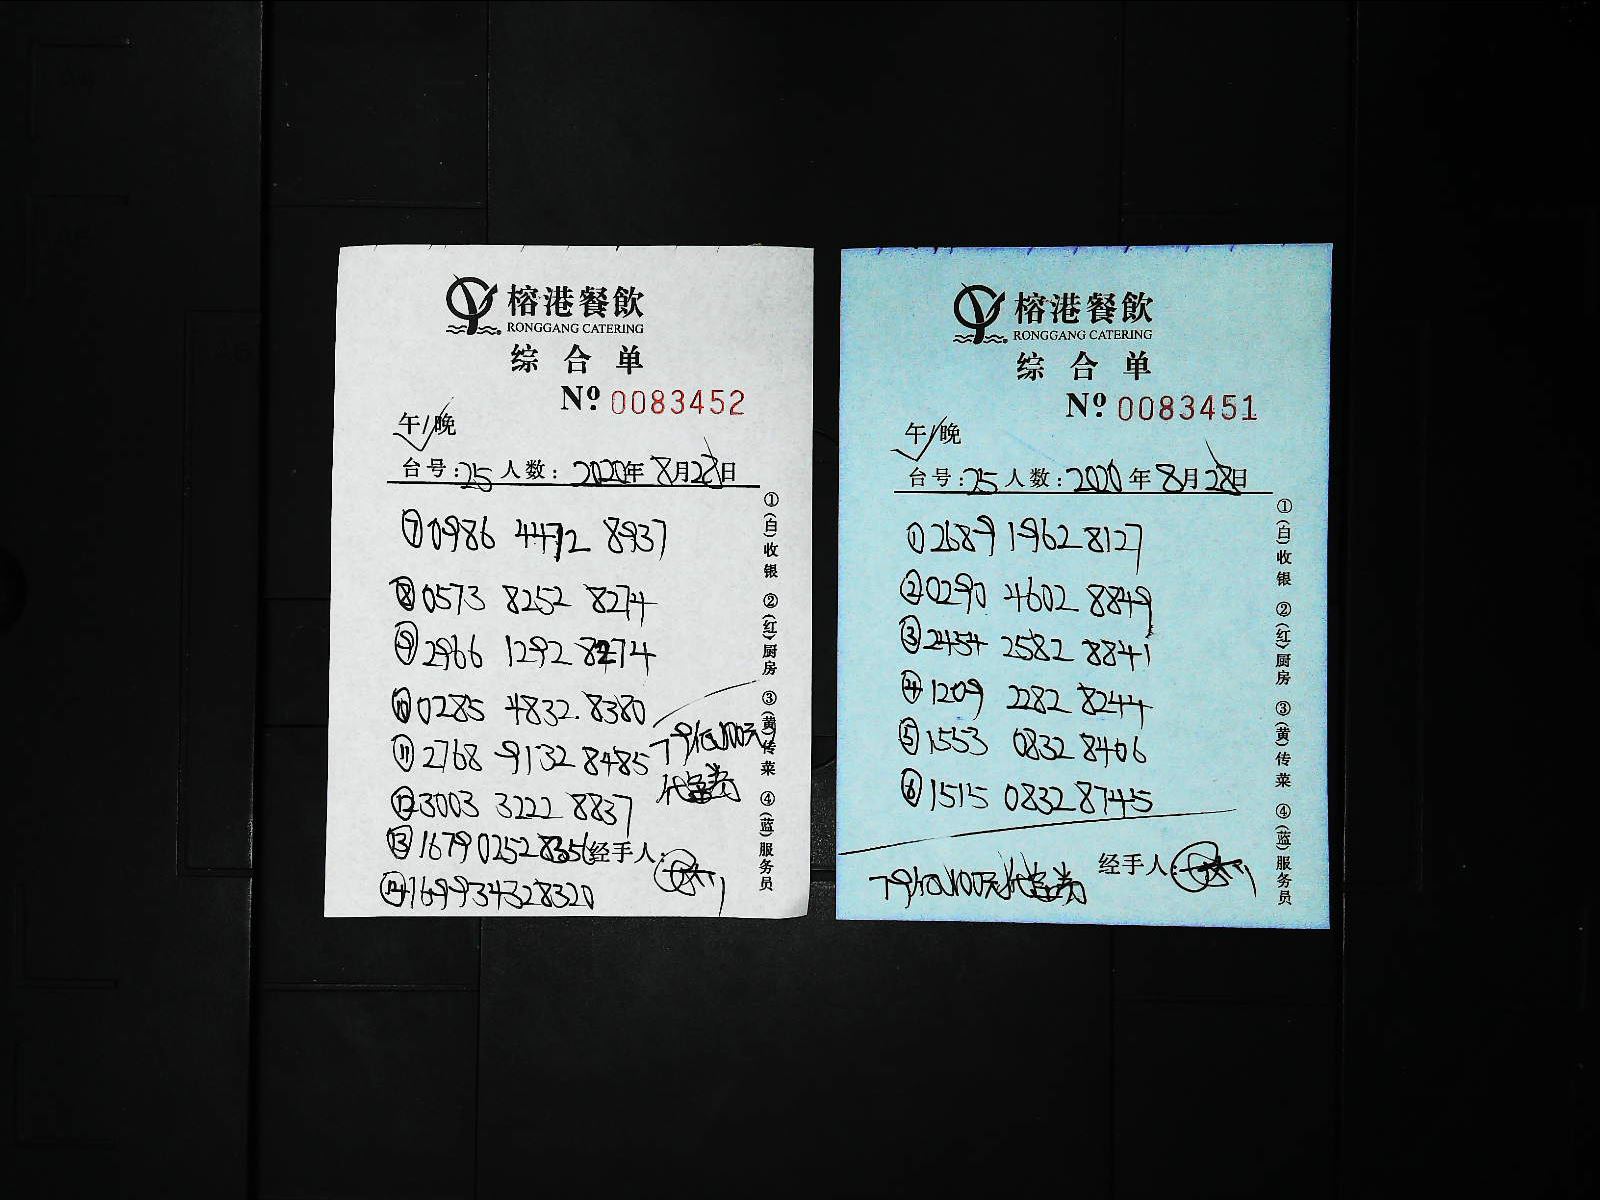 榕港餐飲
RONGGANG CATERING
综合单
Nº 0083452
午/晚
台号:25 人数: 2020年 8月28日
⑦0986 4472 8937
⑧0573 8252 8274
⑨2966 1292 8274
⑩0285 4832 8380
⑪2768 9132 8485
79抵100元
代金券
⑫3003 3222 8837
⑬1679 0252 8356
经手人:
⑭1699 3432 8320
①(白)收银 ②(红)厨房 ③(黄)传菜 ④(蓝)服务员
榕港餐飲
RONGGANG CATERING
综合单
Nº 0083451
午/晚
台号:25 人数: 2020年 8月28日
①2689 1962 8127
②0290 4602 8849
③2454 2582 8841
④1209 2282 8244
⑤1553 0832 8406
⑥1515 0832 8745
经手人:
79抵100元代金券
①(白)收银 ②(红)厨房 ③(黄)传菜 ④(蓝)服务员